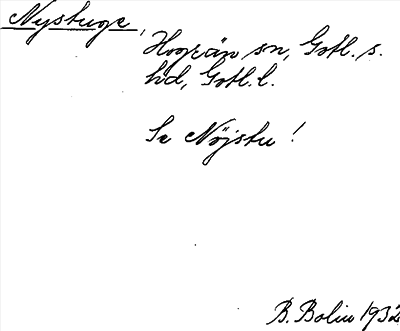 Nystuge,
Hogrän sn, Gotl. s.
hd, Gotl. l.
Se Nöjstu!
B. Bolin 1932